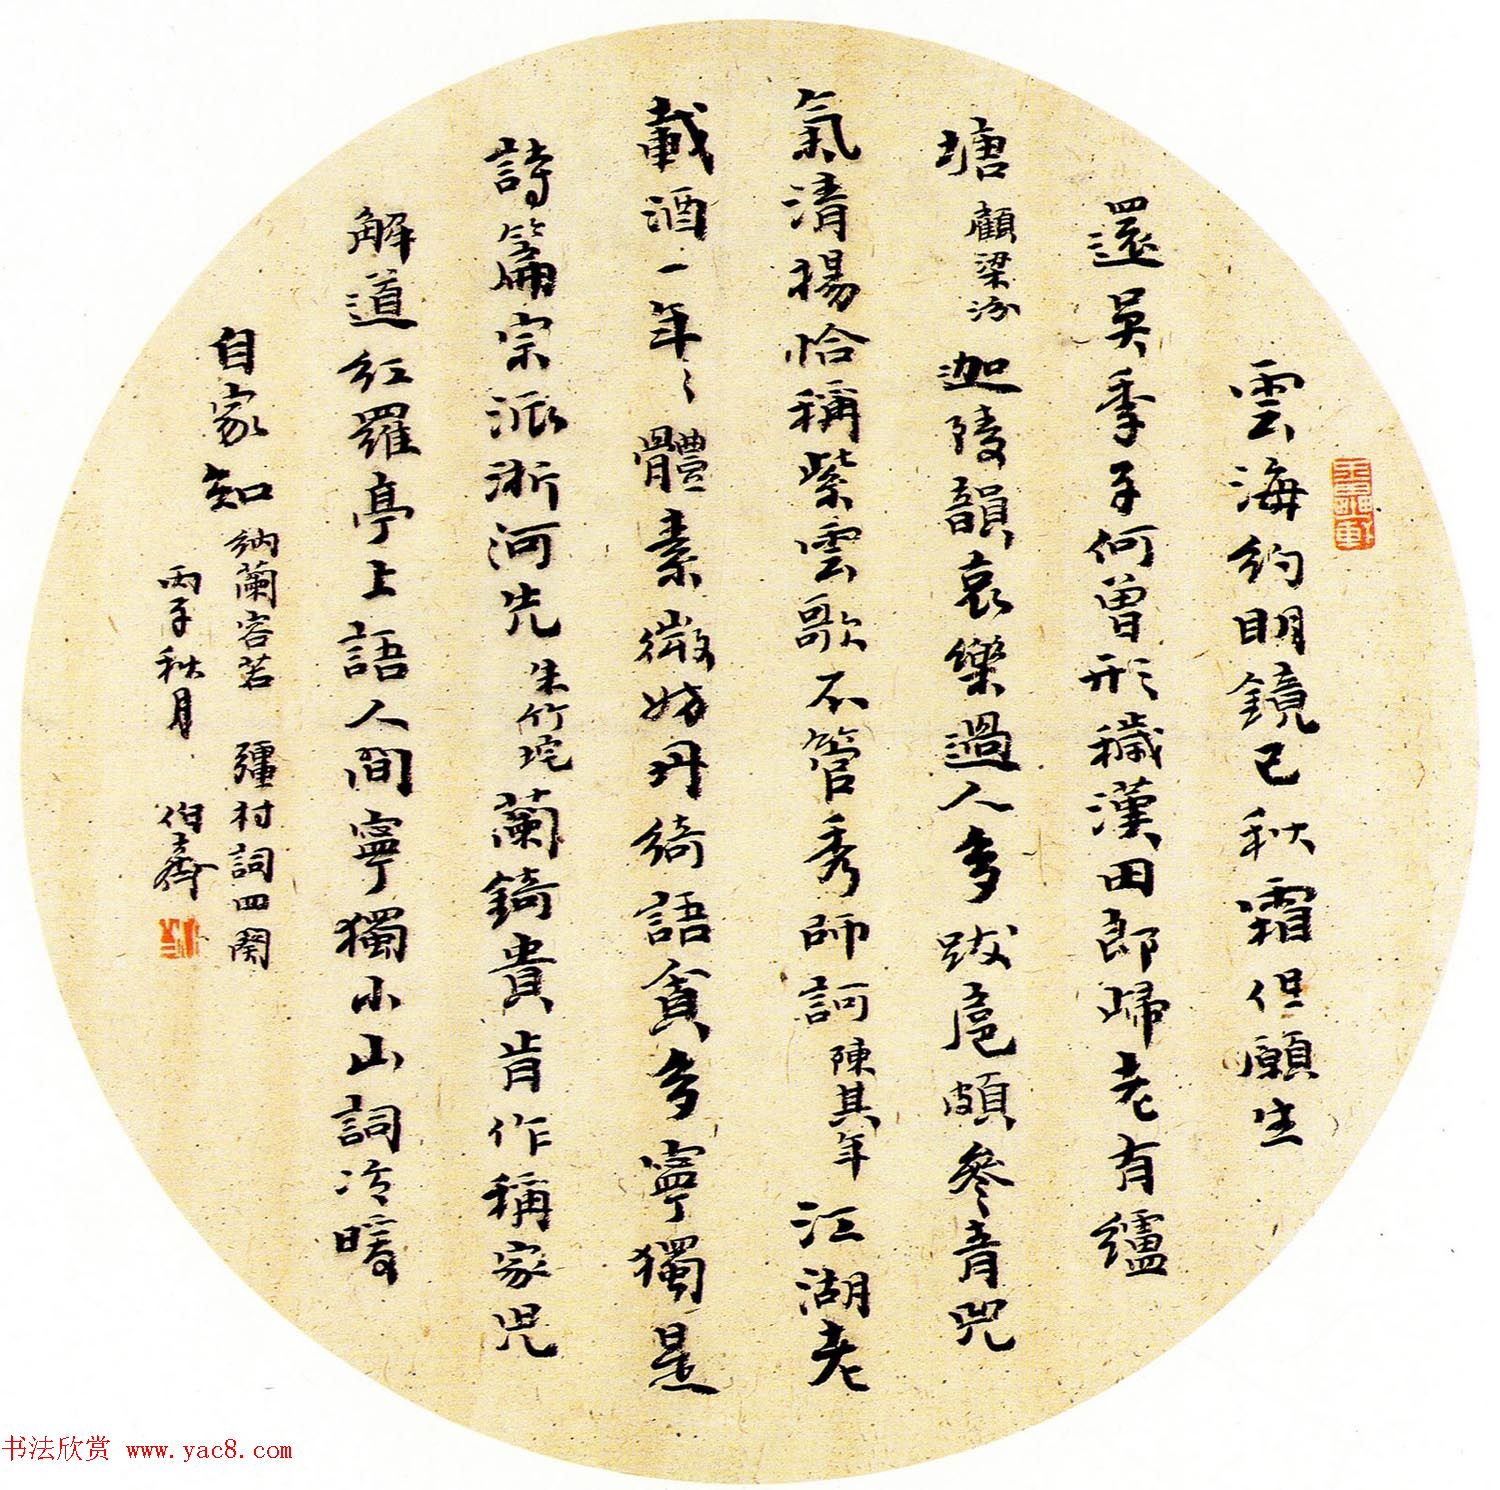 雲海約明鏡已秋霜但願生
還吳季子何曾形穢漢田郎歸老有纑
塘顧梁汾迦陵韻哀樂過人多跋扈頗參青兕
氣清揚恰稱紫雲歌不管秀師訶陳其年江湖老
載酒一年〻體素微妨耽綺語貪多寧獨是
詩篇宗派淅河先朱竹垞蘭錡貴肯作稱家兒
解道紅羅亭上語人間寧獨小山詞冷暖
自家知納蘭容若 彊村詞四闋
丙子秋月 伯齋
书法欣赏 www.yac8.com